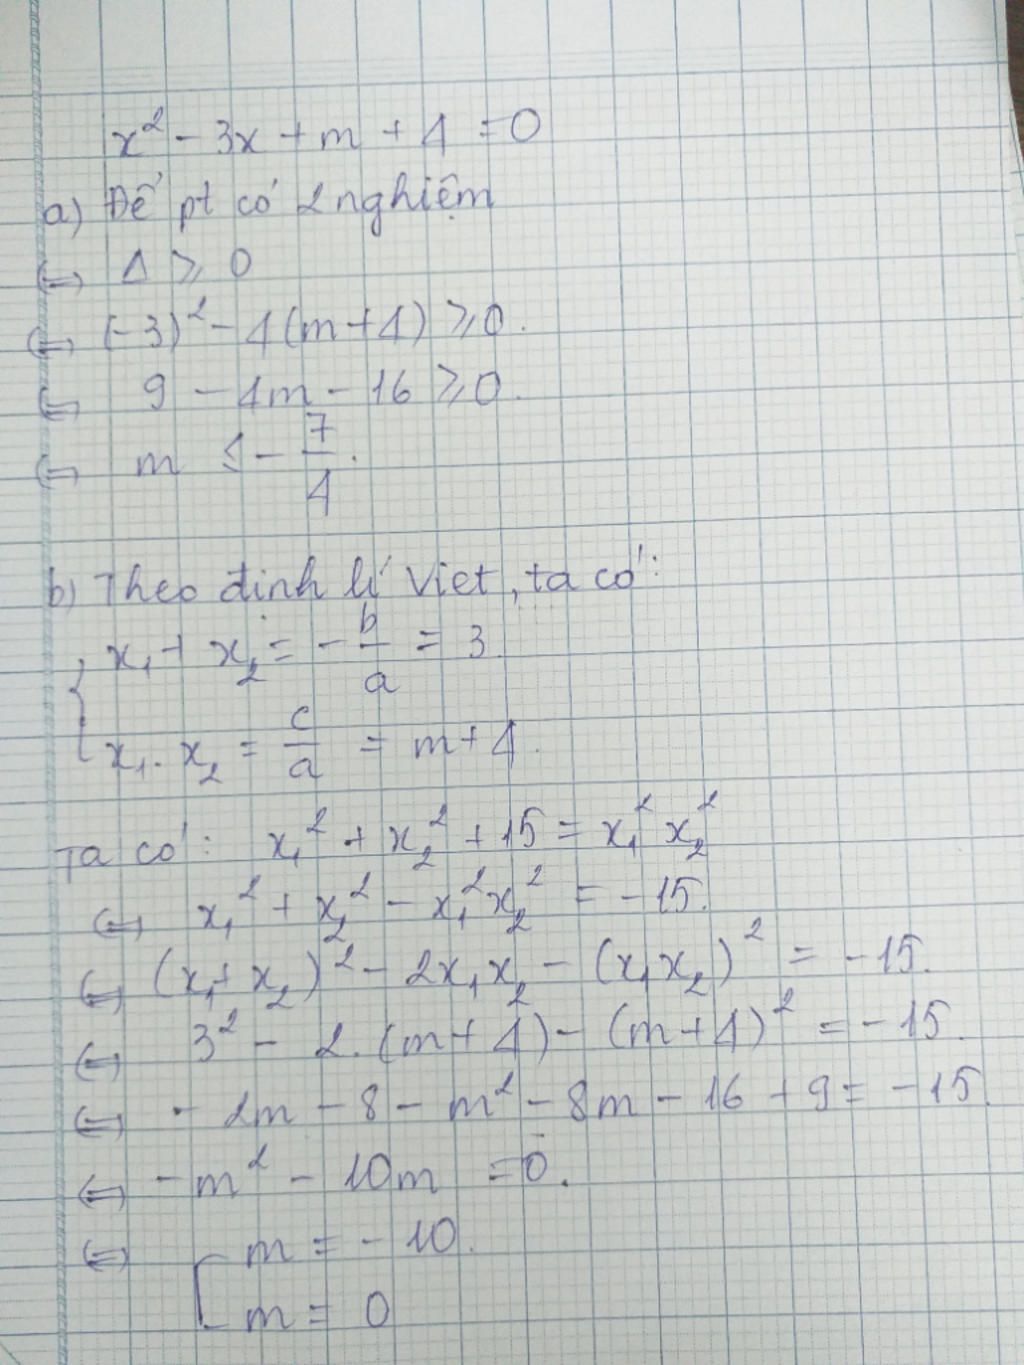 x² - 3x + m + 4 = 0
a) Để pt có 2 nghiệm
⇔ Δ ≥ 0
⇔ (-3)² - 4(m+4) ≥ 0.
⇔ 9 - 4m - 16 ≥ 0.
⇔ m ≤ - 7/4.
b) Theo định lí Viet, ta có:
{ x₁ + x₂ = - b/a = 3.
x₁ . x₂ = c/a = m + 4.
Ta có: x₁² + x₂² + 15 = x₁² x₂²
⇔ x₁² + x₂² - x₁² x₂² = - 15.
⇔ (x₁ + x₂)² - 2x₁x₂ - (x₁x₂)² = -15.
⇔ 3² - 2.(m+4) - (m+4)² = -15.
⇔ - 2m - 8 - m² - 8m - 16 + 9 = -15.
⇔ - m² - 10m = 0.
⇔ [ m = - 10.
m = 0